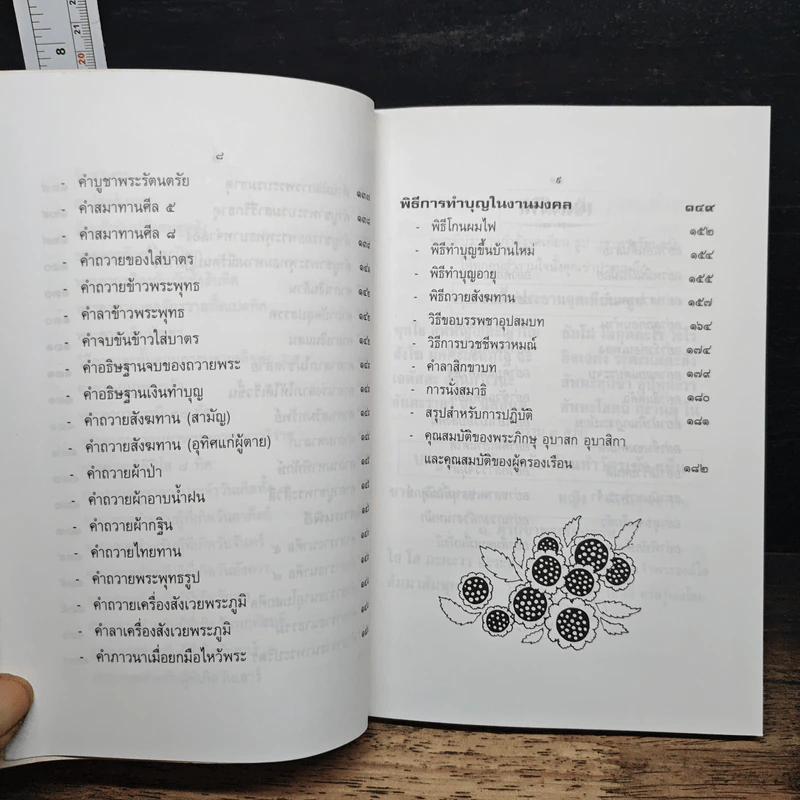 ๘
- คำบูชาพระรัตนตรัย ๑๓๗
- คำสมาทานศีล ๕ ๑๓๘
- คำสมาทานศีล ๘ ๑๓๘
- คำถวายของใส่บาตร
- คำถวายข้าวพระพุทธ
- คำลาข้าวพระพุทธ
- คำจบขันข้าวใส่บาตร
- คำอธิษฐานจบของถวายพระ
- คำอธิษฐานเงินทำบุญ
- คำถวายสังฆทาน (สามัญ)
- คำถวายสังฆทาน (อุทิศแก่ผู้ตาย)
- คำถวายผ้าป่า
- คำถวายผ้าอาบน้ำฝน
- คำถวายผ้ากฐิน
- คำถวายไทยทาน
- คำถวายพระพุทธรูป
- คำถวายเครื่องสังเวยพระภูมิ
- คำลาเครื่องสังเวยพระภูมิ
- คำภาวนาเมื่อยกมือไหว้พระ
๙
พิธีการทำบุญในงานมงคล ๑๔๙
- พิธีโกนผมไฟ ๑๕๒
- พิธีทำบุญขึ้นบ้านใหม่ ๑๕๔
- พิธีทำบุญอายุ ๑๕๕
- พิธีถวายสังฆทาน ๑๕๗
- วิธีขอบรรพชาอุปสมบท ๑๖๔
- วิธีการบวชชีพราหมณ์ ๑๗๔
- คำลาสิกขาบท ๑๗๙
- การนั่งสมาธิ ๑๘๐
- สรุปสำหรับการปฏิบัติ ๑๘๑
- คุณสมบัติของพระภิกษุ อุบาสก อุบาสิกา
และคุณสมบัติของผู้ครองเรือน ๑๘๒